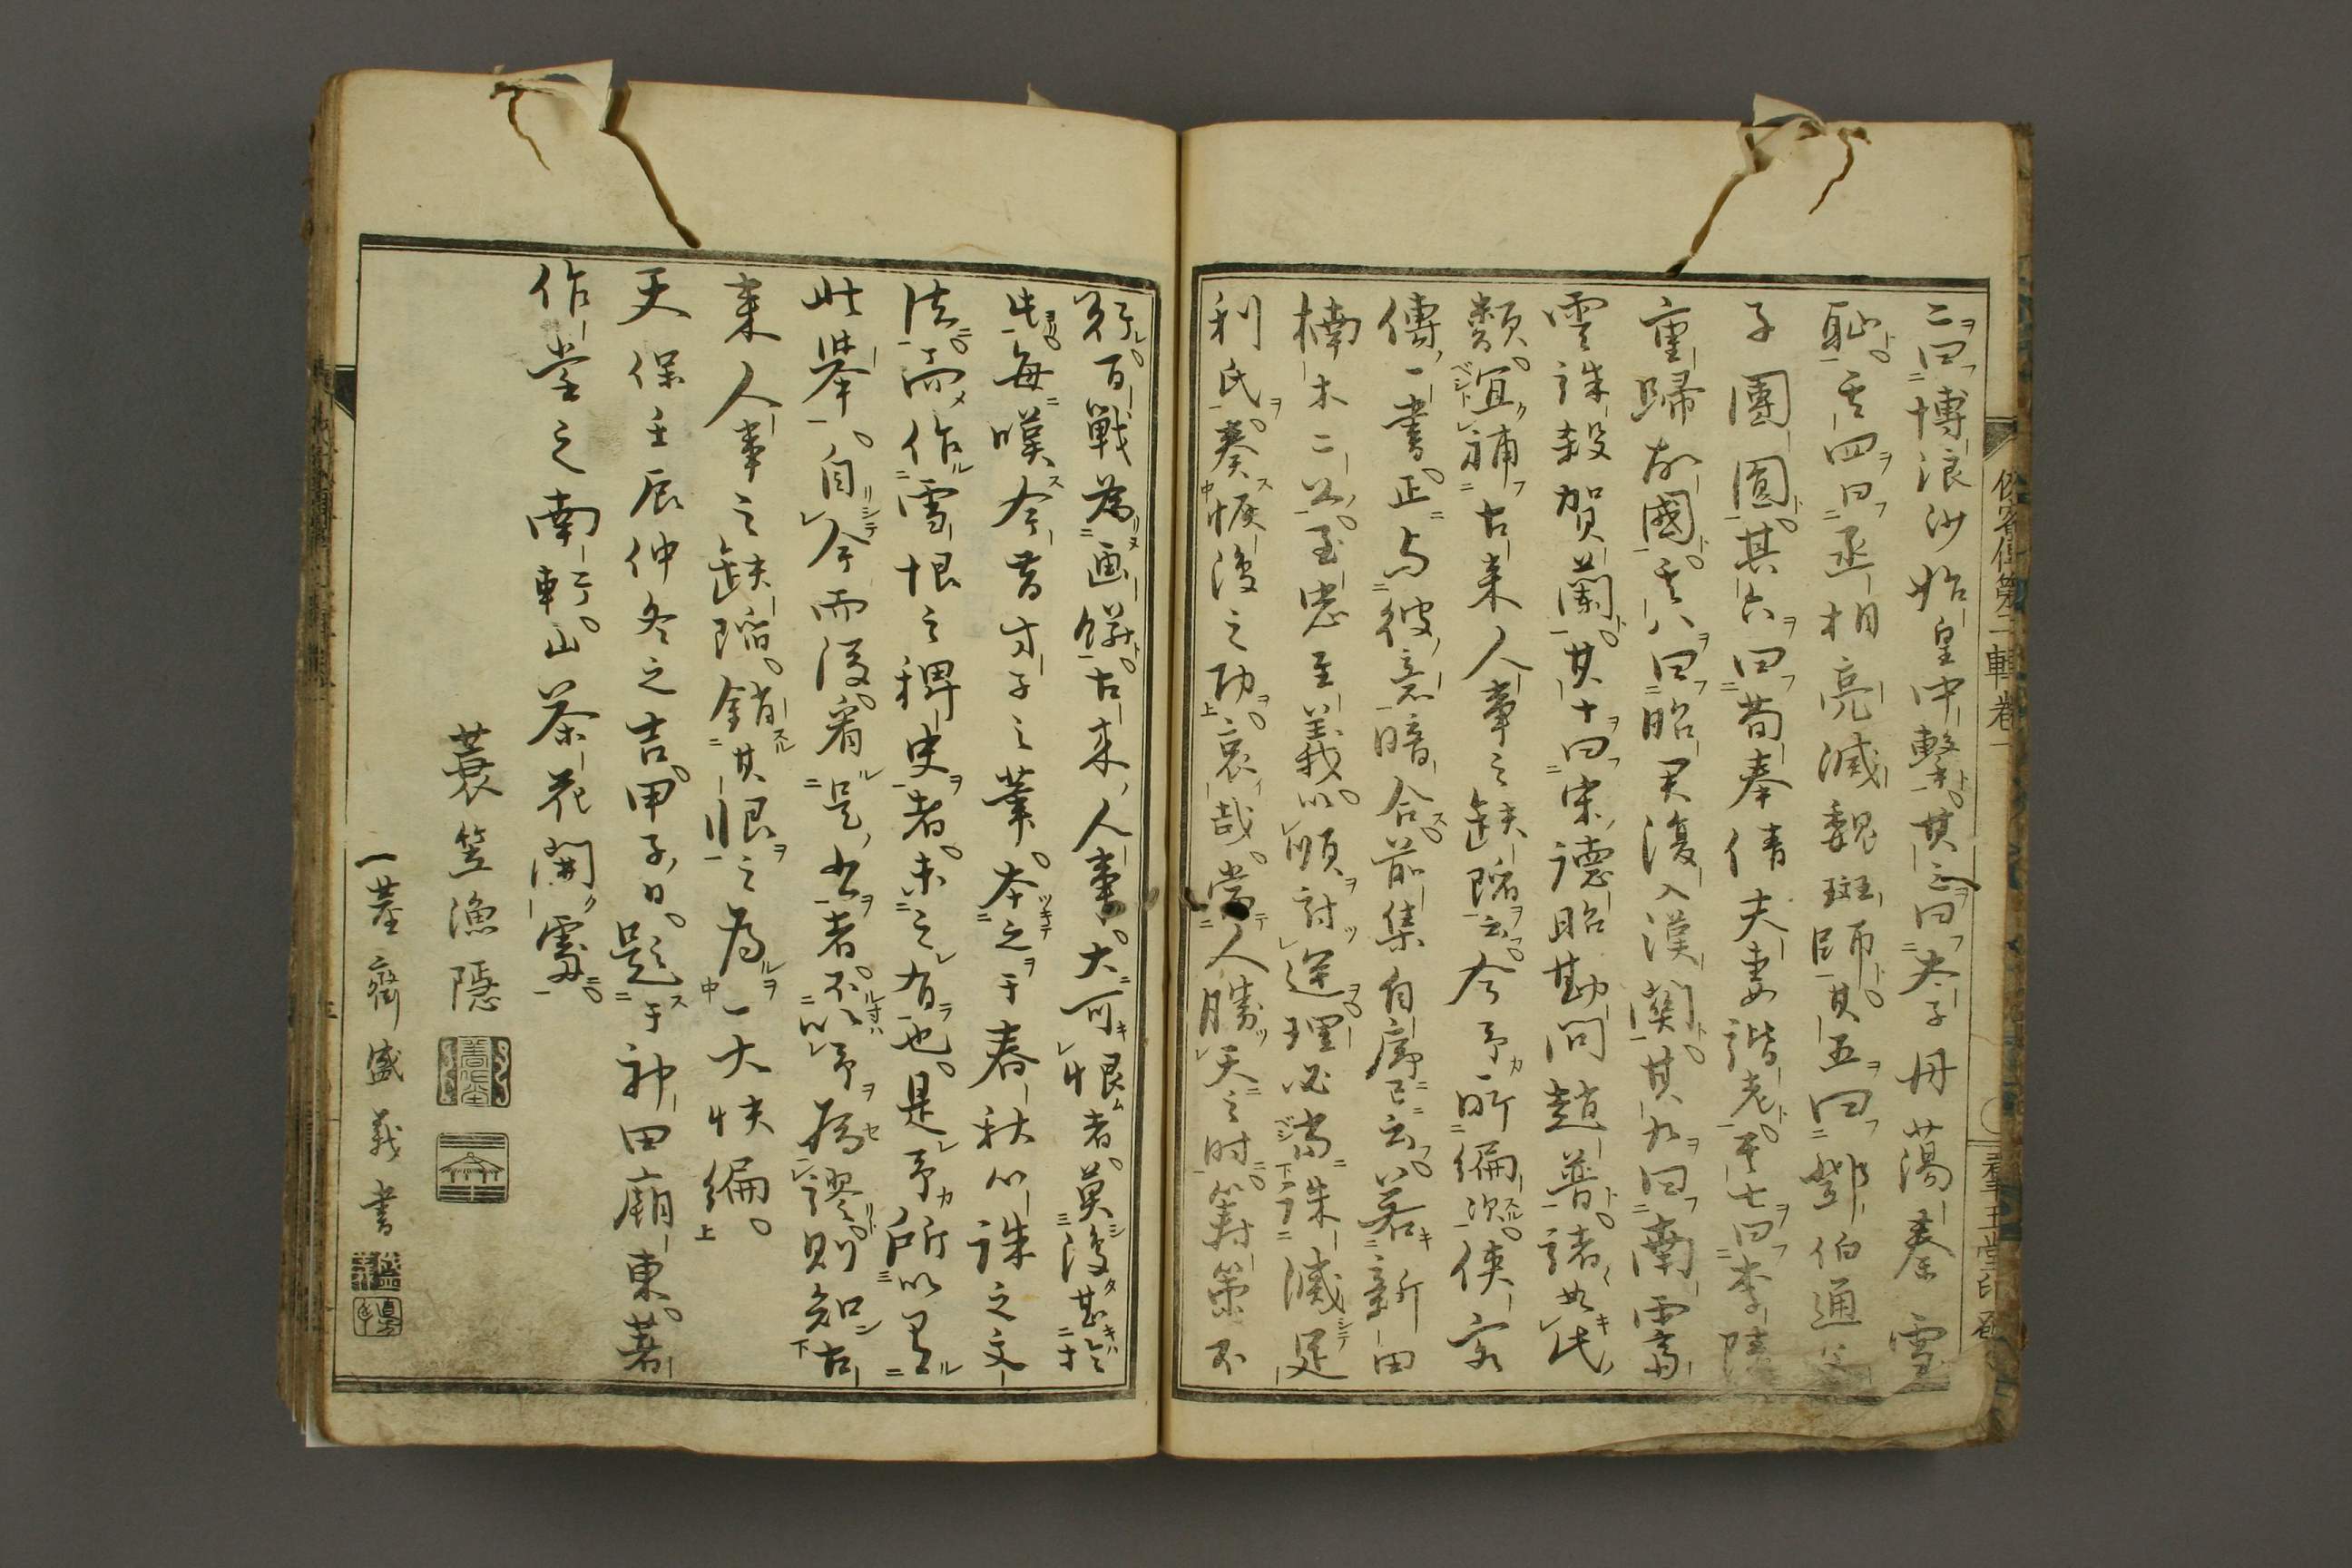 俠客傳第二輯卷一
羣玉堂印
二曰博浪沙始皇中擊其三曰太子丹蕩秦雪
恥其四曰丞相亮滅魏班師其五曰鄧伯道父
子團圓其六曰荀奉倩夫妻諧老其七曰李陵
重歸故國其八曰昭君復入漢關其九曰南霽
雲誅殺賀蘭其十曰宋德昭勘問趙普諸如此
類宜補古來人事之缺陷云今予所編次俠客
傳一書正与彼意暗合前集自序已云若新田
楠木二公至忠至義以順討逆理必當誅滅足
利氏奏恢復之功哀哉當人勝天之時籌策不
行百戰為画餅古来人事大可恨者莫復甚於
此每嘆今昔才子之筆本之于春秋心誅之文
法而作雪恨之稗史者未之有也是予所以有
此舉自今而後看是書者不以予為謬則知古
来人事之缺陷銷其恨之為一大快編
天保壬辰仲冬之吉甲子日題于神田廟東著
作堂之南軒山茶花開處
蓑笠漁隱
一葊齋盛義書